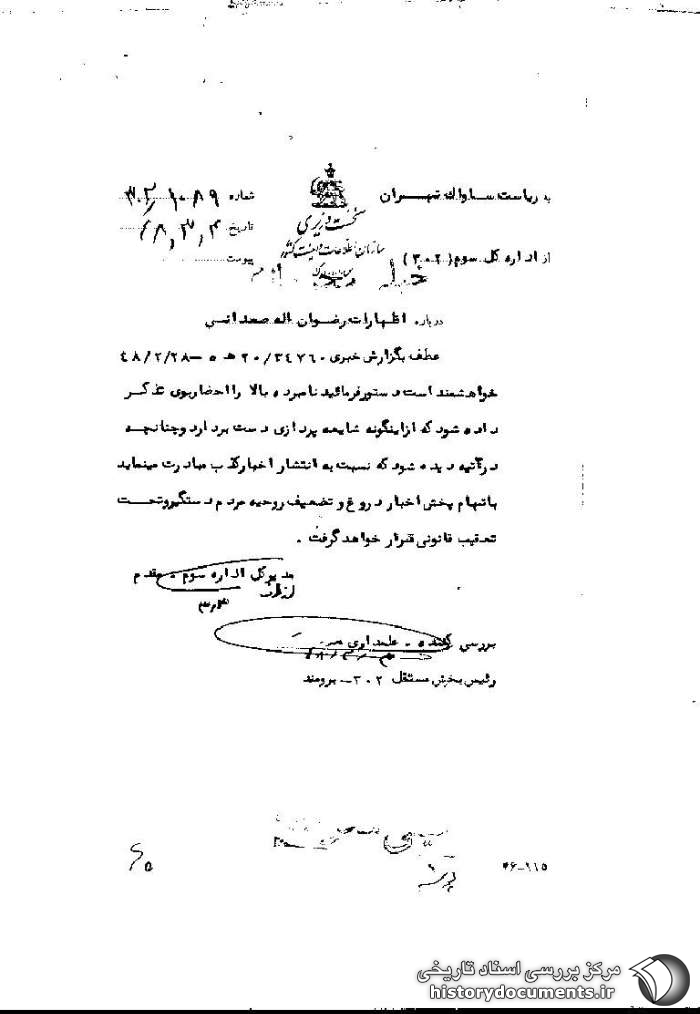 به ریاست ساواک تهران
شماره ۳۰۲/۱۰۸۹
نخست وزیری
تاریخ ۴۸/۳/۴
سازمان اطلاعات و امنیت کشور
از اداره کل سوم (۳۰۲)
پیوست
درباره اظهارات رضوان اله صمدانی
عطف بگزارش خبری ۲۰/۳۴۷۶۰ ه ۵ - ۴۸/۲/۲۸
خواهشمند است دستور فرمائید نامبرده بالا را احضار بوی تذکر
داده شود که از اینگونه شایعه پردازی دست بردارد و چنانچه
در آتیه دیده شود که نسبت به انتشار اخبار کذب مبادرت مینماید
باتهام پخش اخبار دروغ و تضعیف روحیه مردم دستگیر و تحت
تعقیب قانونی قرار خواهد گرفت .
مدیر کل اداره سوم - مقدم
۳/۳
بررسی کننده - علمداری
رئیس بخش مستقل ۳۰۲ - برومند
۶۵
۴۶-۱۱۵
مرکز بررسی اسناد تاریخی
historydocuments.ir